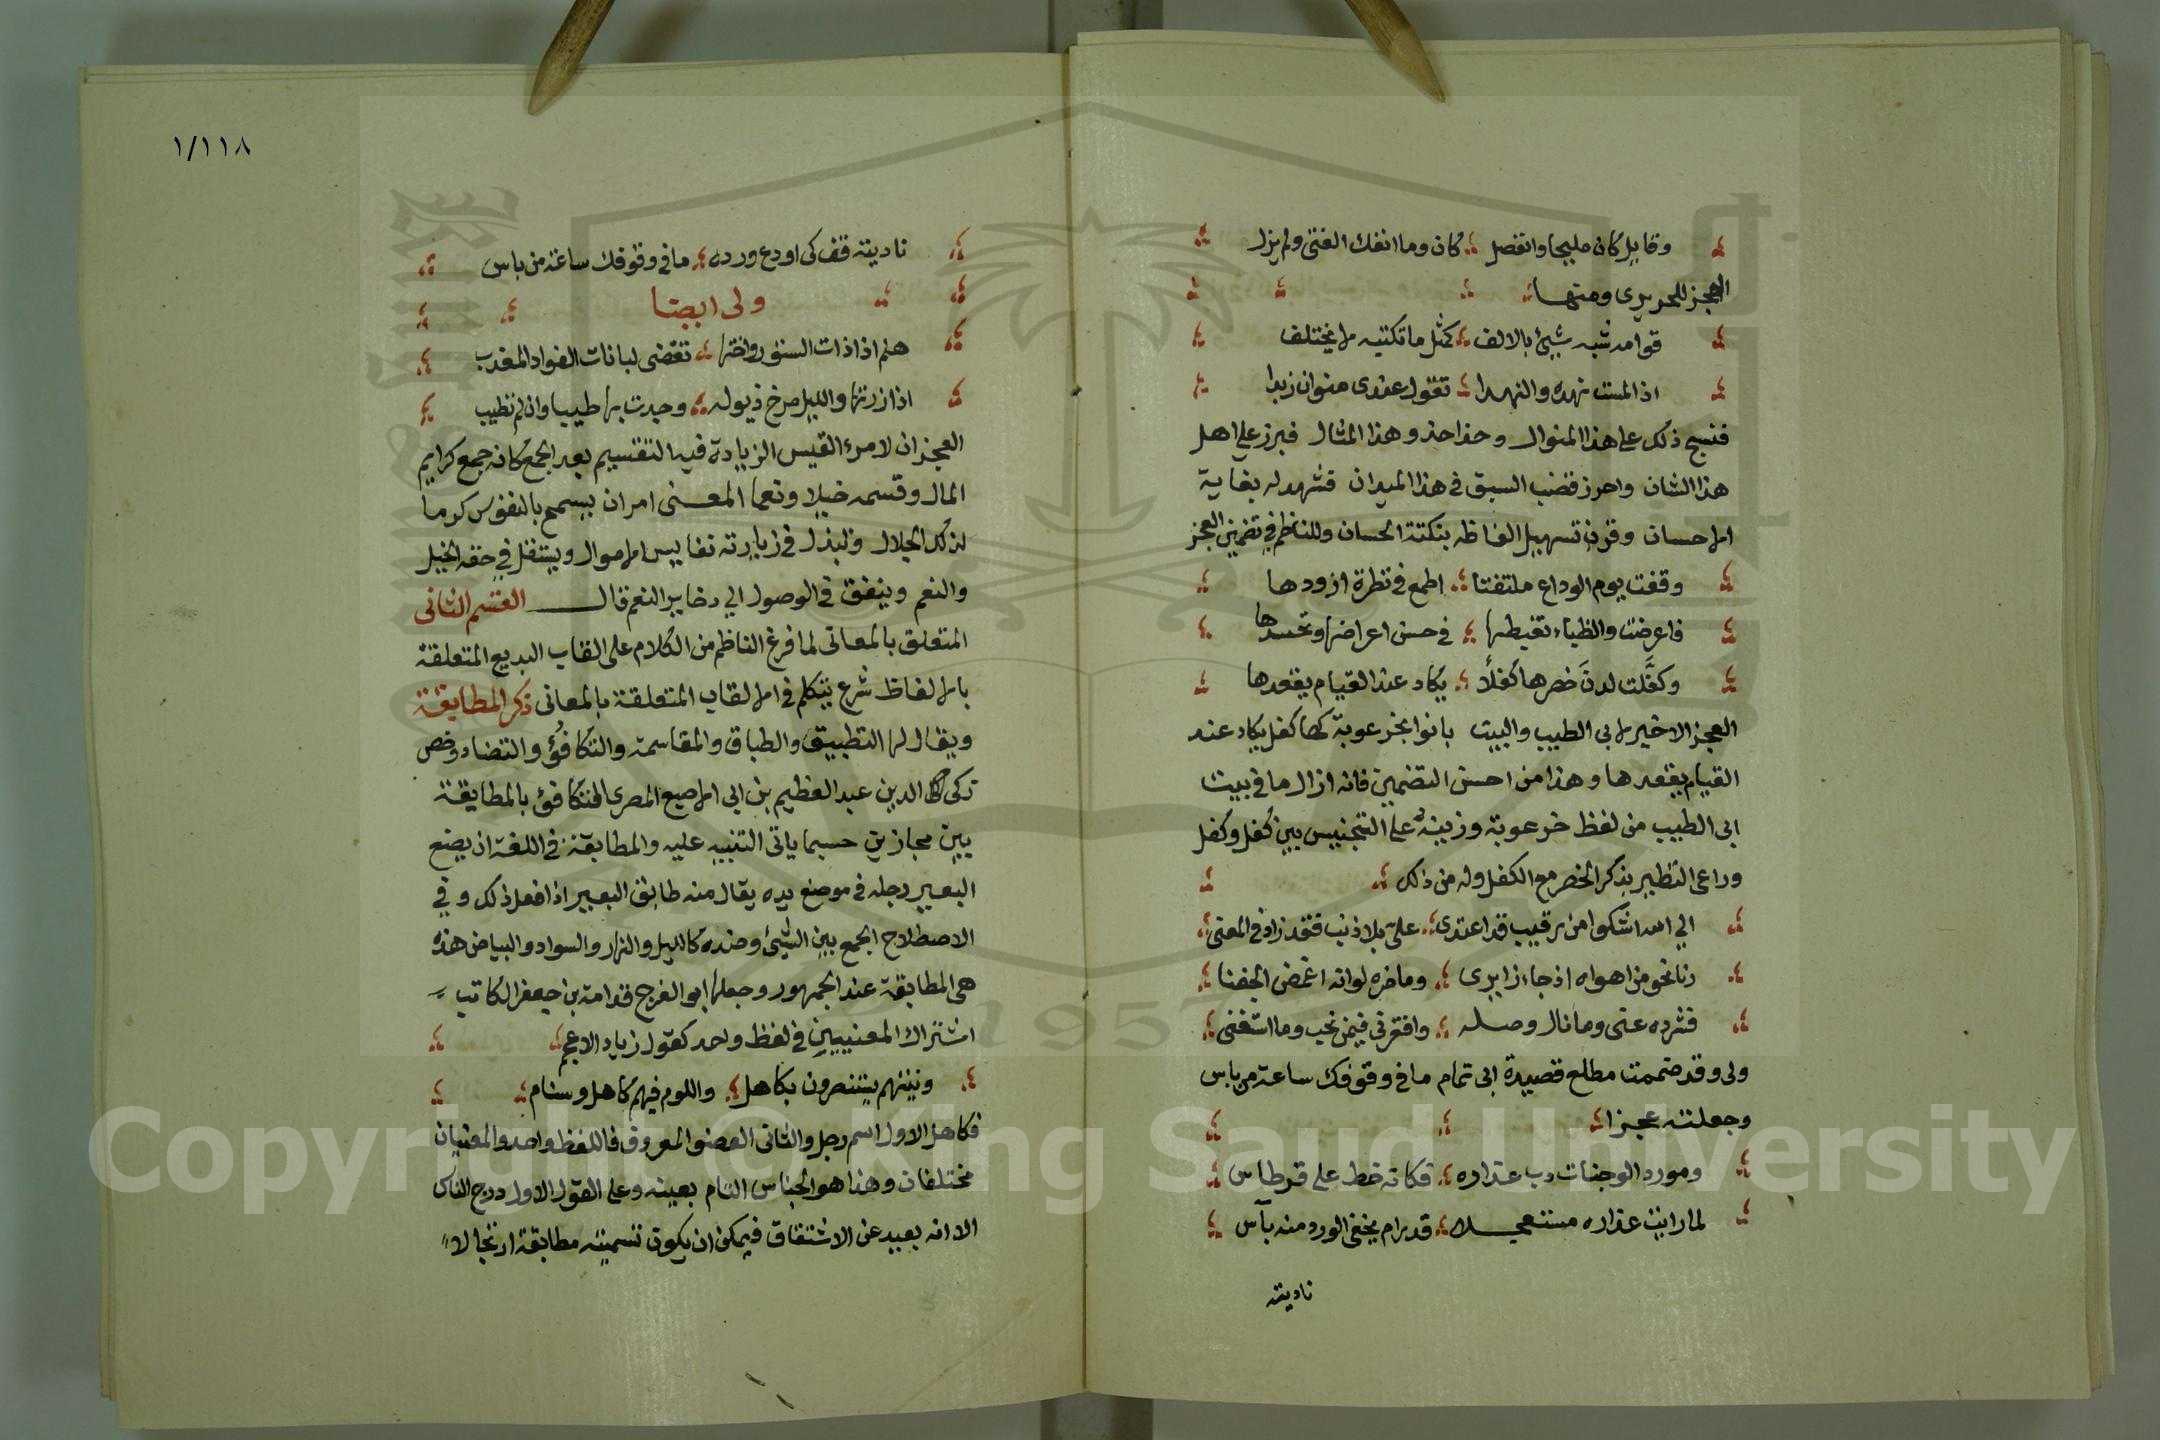 وقايل كان مليحا وانفصل كان وما انفك الفتى ولم يزل
العجز للحريري ومنها
قوامه شبه شيئ بالالف كمثل ما تكتبه لا يختلف
اذا لمست نهده والنهدا تقول عندى منوان زبدا
فنسج ذلك على هذا المنوال وحذا حذو هذا المثال فبرز على اهل
هذا الشان واحرز قضب السبق في هذا الميدان فشهد له بغاية
الاحسان وقرن تسهيل الفاظه بنكتة الحسان وللناظم في تضمين العجز
وقفت يوم الوداع ملتفتا اطمع في نظرة ازودها
فاعرضت والظباء تغبطها في حسن اعراضها وتحسدها
وكفَّلت لدنَ خصرها كفلًا يكاد عند القيام يقعدها
العجز الاخير لابى الطيب والبيت بانوا بخرعوبة لها كفل يكاد عند
القيام يقعدها وهذا من احسن التضمين فانه ازال ما في بيت
ابى الطيب من لفظ خرعوبة وزينه على التجنيس بين كفل وكفل
وراعى النظير بذكر الخصر مع الكفل وله من ذلك
الي الله اشكوا من رقيب قد اعتدى علىّ بلا ذنب فقد زاد في المعنى
دنا نحو من اهواه اذ جاء زايرى وما ضره لو انه اغمض الجفنا
فشرده عنى وما نال وصله وافقرنى فيمن نحب وما استغنى
ولى وقد ضممت مطلع قصيدة ابى تمام ما في وقوفك ساعة من باس
وجعلته عجزا
ومورد الوجنات دب عذاره فكانه خط على قرطاس
لما رايت عذاره مستعجلا قد رام يخفى الورد منه بآس
ناديته
١/١١٨
ناديته قف كى اودع ورده ما في وقوفك ساعة من باس
ولى ايضا
هلم اذا ذات الستور واختها تقضى لبانات الفواد المعذب
اذا زرتها والليل مرخ ذيوله وجدت بها طيبا وان لم تطيب
العجز ان لامرء القيس الزيادة فيه التقسيم بعد الجمع كانه جمع كرايم
المال وقسمه خيلا ونعما المعنى امر ان يسمح بالنفوس كرما
لذلك الجلال وتبذل في زيارته نفايس الاموال ويستقل في حقه الخيل
والنعم وينفق في الوصول الي دخاير النعم قال القسم الثانى
المتعلق بالمعانى لما فرغ الناظم من الكلام على القاب البديع المتعلقة
بالالفاظ شرع يتكلم في الالقاب المتعلقة بالمعانى ذكر المطابقة
ويقال لها التطبيق والطباق والمقاسمة والتكافؤ والتضاد وخص
زكى الدين عبد العظيم بن ابي الاصبع المصرى التكافؤ بالمطابقة
بين مجازين حسبما ياتى التنبيه عليه والمطابقة في اللغة ان يضع
البعير رجله في موضع يده يقال منه طابق البعير اذا فعل ذلك وفي
الاصطلاح الجمع بين الشيئ وضده كالليل والنهار والسواد والبياض هذه
هى المطابقة عند الجمهور وجعلها ابو الفرج قدامة بن جعفر الكاتب
اشتراك المعنيين في لفظ واحد كقول زياد الاعجم
ونبئتهم يستنصرون بكاهل واللوم فيهم كاهل وسنام
فكاهل الاول اسم رجل والثانى العضو المعروف فاللفظ واحد والمعنيان
مختلفان وهذا هو الجناس التام بعينه وعلى القول الاول درج الناس
الا انه بعيد عن الاشتقاق فيمكن ان يكون تسميته مطابقة ارتجالا
Copyright © King Saud University
1957